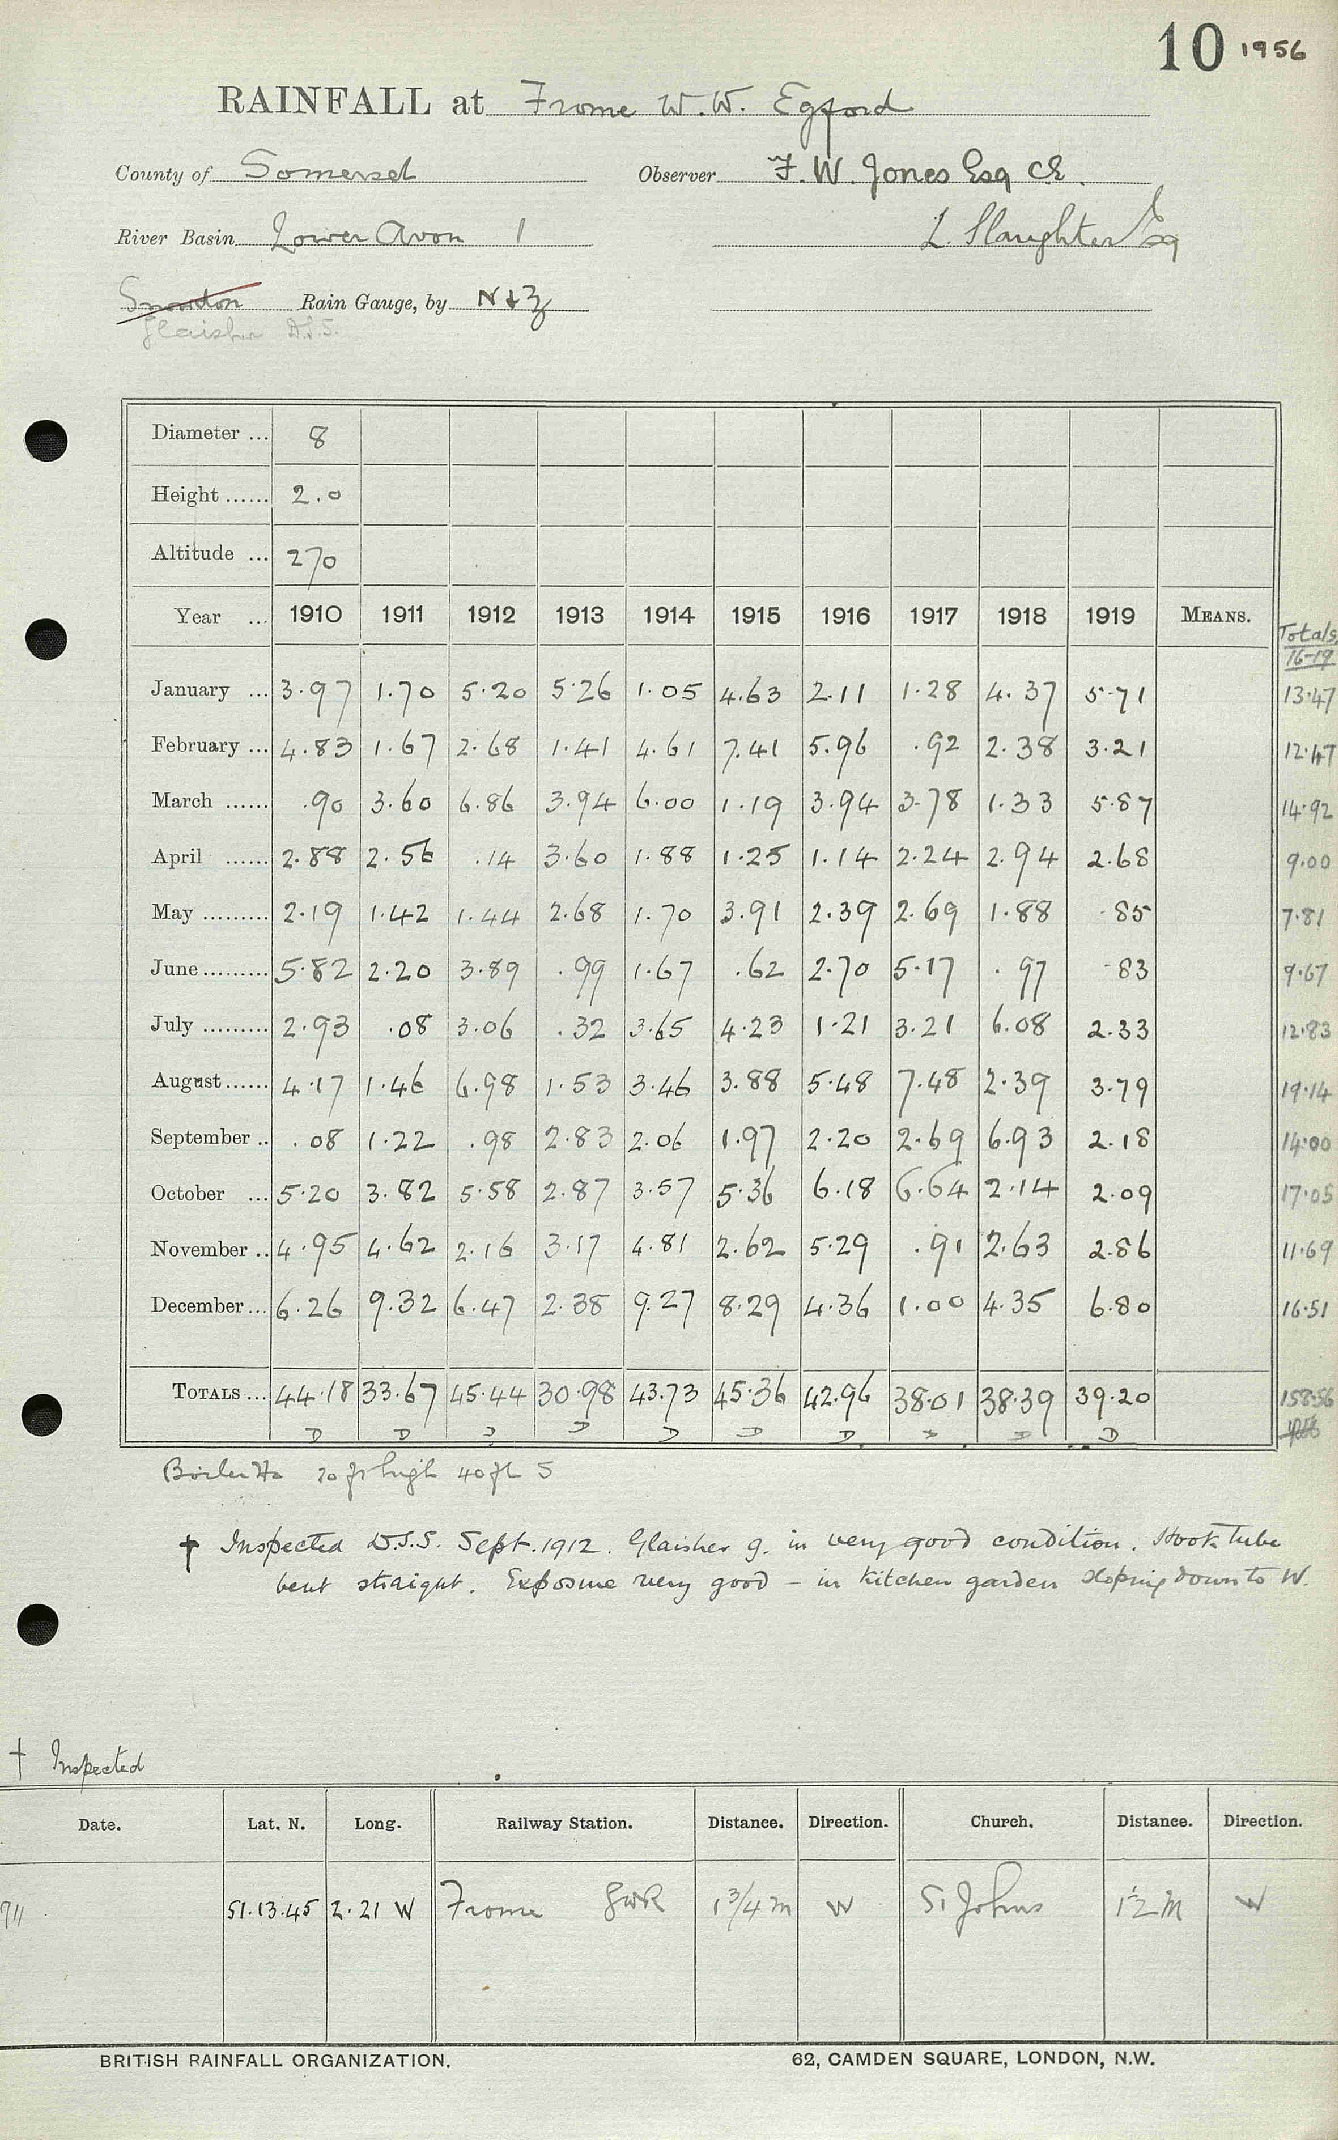 10 1956
RAINFALL at Frome W.W. Egford
County of Somerset Observer F. W. Jones Esq CE.
River Basin Lower Avon 1 L Slaughter Esq
Snowdon Rain Gauge, by N & Z
Glaisher D.S.S.
Diameter ... 8
Height ...... 2.0
Altitude ... 270
Year ... 1910 1911 1912 1913 1914 1915 1916 1917 1918 1919 MEANS. Totals 16-19
January ... 3.97 1.70 5.20 5.26 1.05 4.63 2.11 1.28 4.37 5.71 13.47
February ... 4.83 1.67 2.68 1.41 4.61 7.41 5.96 .92 2.38 3.21 12.47
March ...... .90 3.60 6.86 3.94 6.00 1.19 3.94 3.78 1.33 5.87 14.92
April ...... 2.88 2.56 .14 3.60 1.88 1.25 1.14 2.24 2.94 2.68 9.00
May ......... 2.19 1.42 1.44 2.68 1.70 3.91 2.39 2.69 1.88 .85 7.81
June ......... 5.82 2.20 3.89 .99 1.67 .62 2.70 5.17 .97 .83 9.67
July ......... 2.93 .08 3.06 .32 3.65 4.23 1.21 3.21 6.08 2.33 12.83
August ...... 4.17 1.46 6.98 1.53 3.46 3.88 5.48 7.48 2.39 3.79 19.14
September .. .08 1.22 .98 2.83 2.06 1.97 2.20 2.69 6.93 2.18 14.00
October ... 5.20 3.82 5.58 2.87 3.57 5.36 6.18 6.64 2.14 2.09 17.05
November .. 4.95 4.62 2.16 3.17 4.81 2.62 5.29 .91 2.63 2.86 11.69
December ... 6.26 9.32 6.47 2.38 9.27 8.29 4.36 1.00 4.35 6.80 16.51
TOTALS ... 44.18 33.67 45.44 30.98 43.73 45.36 42.96 38.01 38.39 39.20 158.56
D D D D D D D D D D
Boiler Ho 20 ft high 40 ft S
† Inspected D.S.S. Sept. 1912. Glaisher g. in very good condition. Hook tube
bent straight. Exposure very good – in kitchen garden sloping down to W.
† Inspected
Date. Lat. N. Long. Railway Station. Distance. Direction. Church. Distance. Direction.
911 51.13.45 2.21 W Frome GWR 1 3/4 m W St Johns 1½ m W
BRITISH RAINFALL ORGANIZATION. 62, CAMDEN SQUARE, LONDON, N.W.